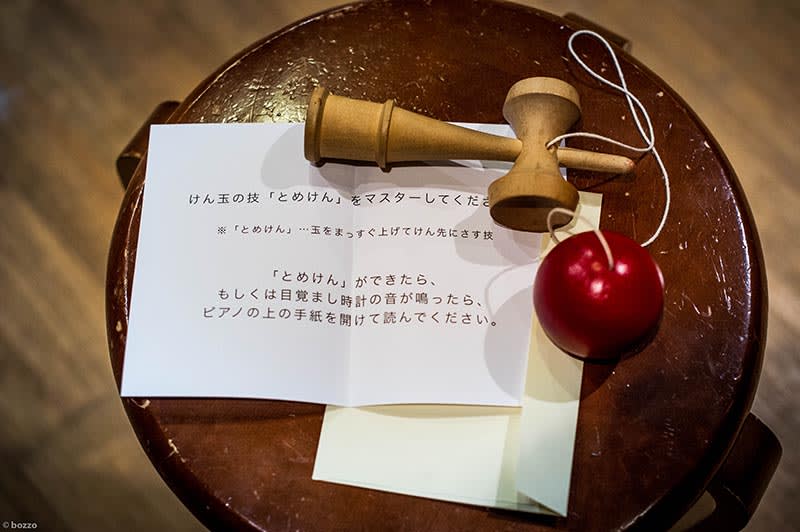 けん玉の技「とめけん」をマスターしてくださ
※「とめけん」…玉をまっすぐ上げてけん先にさす技
「とめけん」ができたら、
もしくは目覚まし時計の音が鳴ったら、
ピアノの上の手紙を開けて読んでください。
© bozzo